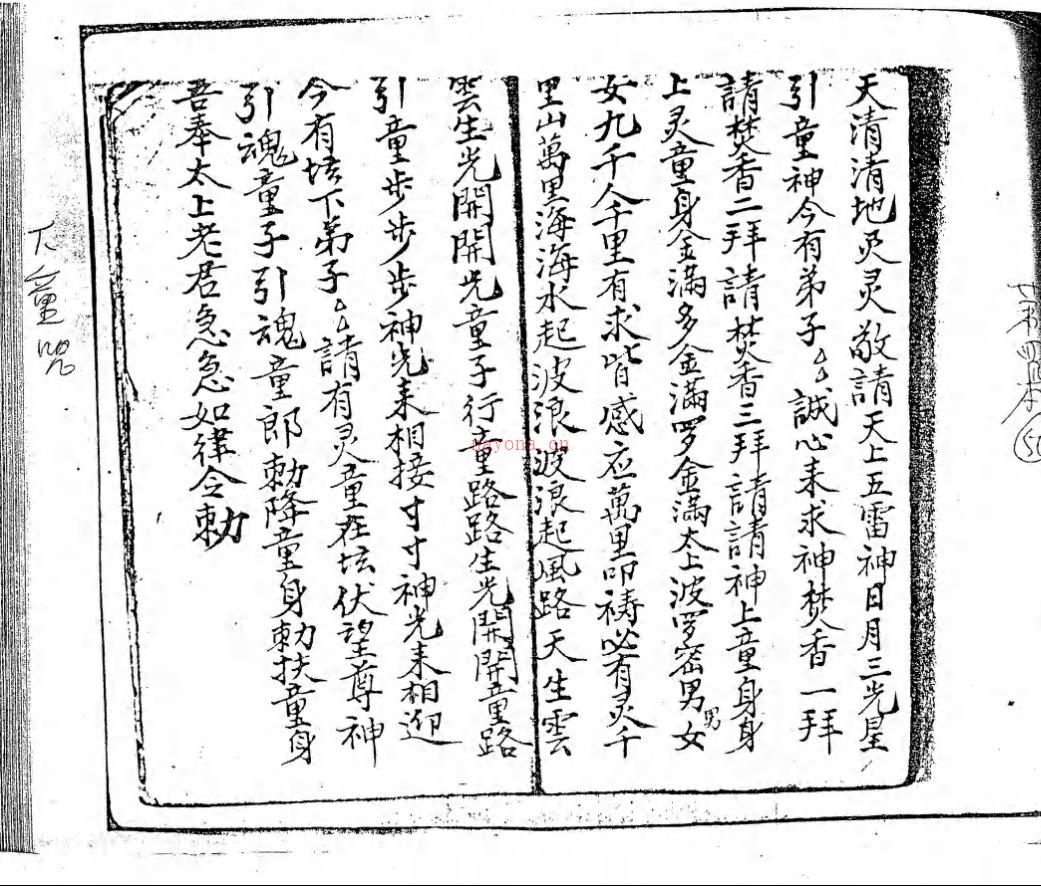 天清清地灵灵敬請天上五雷神日月三光星
引童神今有弟子厶厶誠心来求神焚香一拜
請焚香二拜請焚香三拜請請神上童身身
上灵童身金滿多金滿罗金滿太上波罗密男女男
女九千人千里有求皆感应萬里叩祷必有灵千
里山萬里海海水起波浪波浪起風路天生雲
雲生光開開光童子行童路路生光開開童路
引童步步步步神光来相接寸寸神光来相迎
今有壇下弟子厶厶請有灵童在坛伏望尊神
引魂童子引魂童郎勅降童身勅扶童身
吾奉太上老君急急如律令勅
下童咒
本
50
nayona.cn